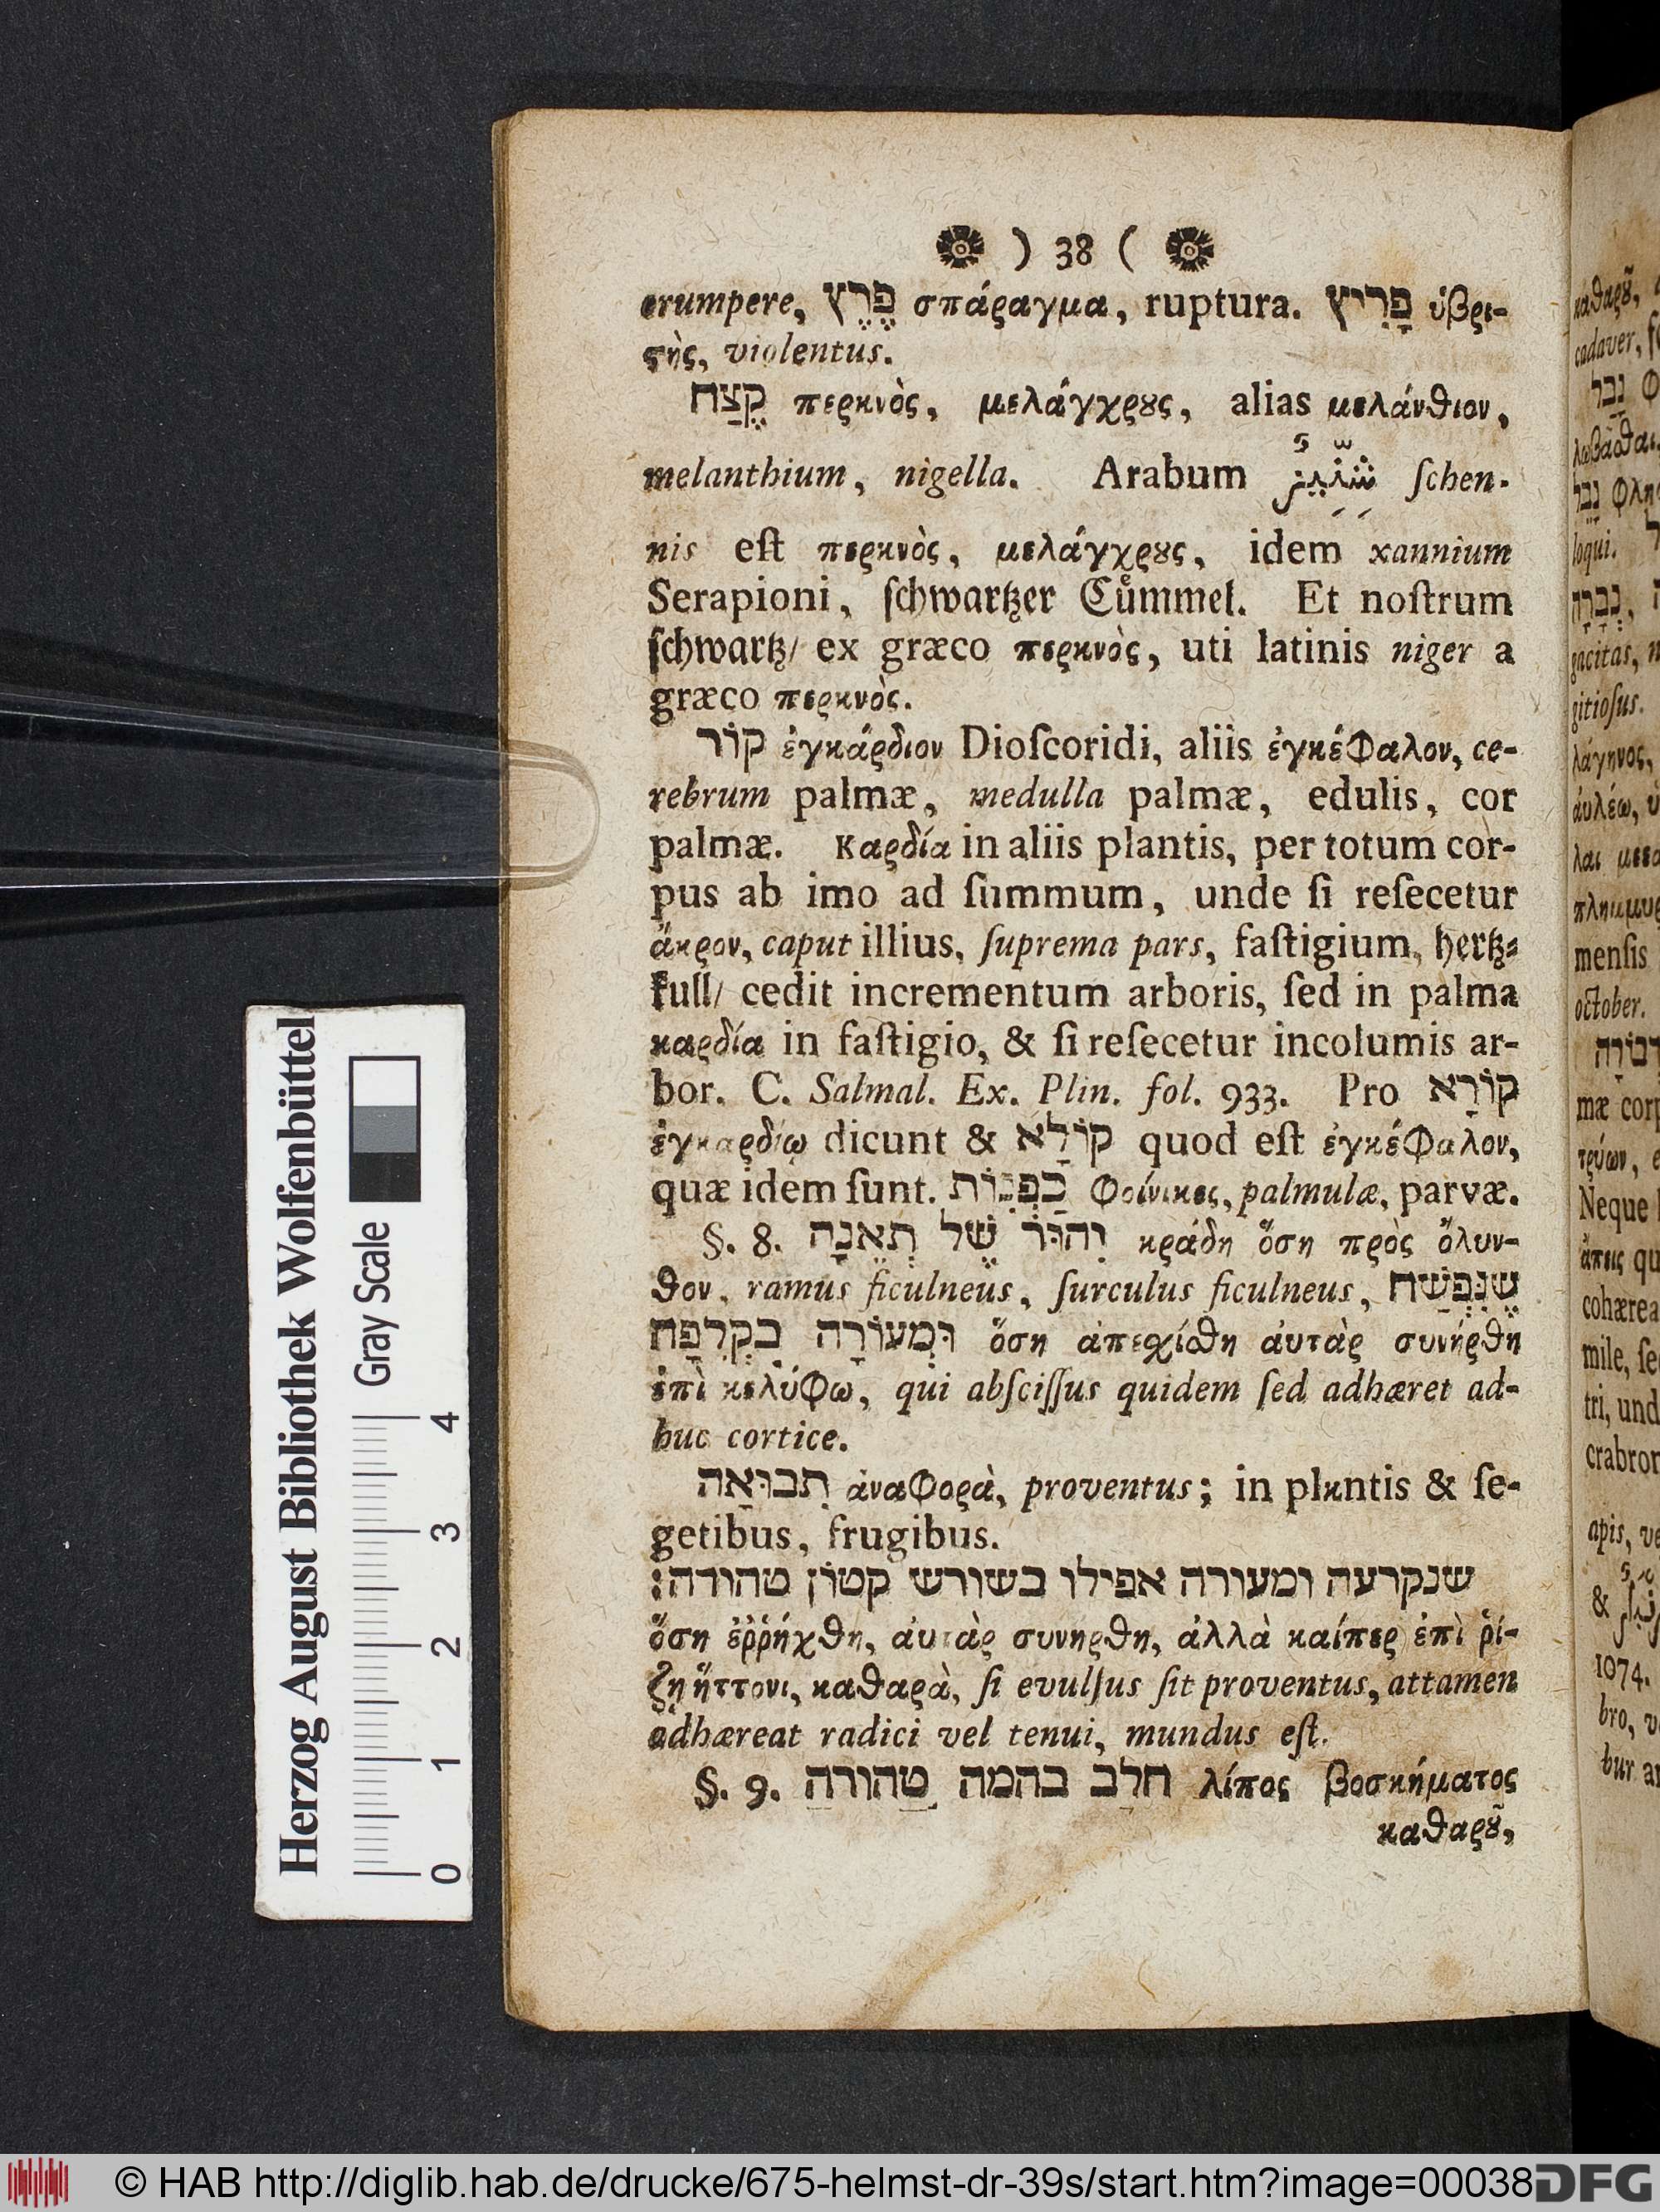 ) 38 (
erumpere, פֶּרֶץ σπάραγμα, ruptura. פָּרִיץ ὑβρι-
ϛὴς, violentus.
קֶצַח περκνὸς, μελάγχρȣς, alias μελάνθιον,
melanthium, nigella. Arabum شِنِّيز ſchen-
nis eſt περκνὸς, μελάγχρȣς, idem xannium
Serapioni, ſchwartzer Cuͤmmel. Et noſtrum
ſchwartz/ ex græco περκνὸς, uti latinis niger a
græco περκνὸς.
קוֹר ἐγκάρδιον Dioſcoridi, aliis ἐγκέφαλον, ce-
rebrum palmæ, medulla palmæ, edulis, cor
palmæ. Καρδία in aliis plantis, per totum cor-
pus ab imo ad ſummum, unde ſi reſecetur
ἄκρον, caput illius, ſuprema pars, faſtigium, hertz-
kull/ cedit incrementum arboris, ſed in palma
καρδία in faſtigio, & ſi reſecetur incolumis ar-
bor. C. Salmal. Ex. Plin. fol. 933. Pro קוֹרָא
ἐγκαρδίῳ dicunt & קוֹלָא quod eſt ἐγκέφαλον,
quæ idem ſunt. כַּפְנִיּוֹת φοίνικες, palmulæ, parvæ.
§. 8. יִהוּר שֶׁל תְאֵנָה κράδη ὅση πρὸς ὄλυν-
θον, ramus ficulneus, ſurculus ficulneus, שֶׁנִּפְשַׁח
וּמְעוֹרָה בקְלִפָּה ὅση ἀπεχίσθη ἀυτὰρ συνήρθη
ἐπὶ κελύφω, qui abſciſſus quidem ſed adhæret ad-
huc cortice.
תִבוּאָה ἀναφορὰ, proventus; in plantis & ſe-
getibus, frugibus.
שנקרעה ומעורה אפילו בשורש קטוֹן טהורה:
ὅση ἐῤῥήχθη, ἀυτὰρ συνηρθη, ἀλλὰ καίπερ ἐπὶ ῥί-
ζῃ ἥττονι, καθαρὰ, ſi evulſus ſit proventus, attamen
adhæreat radici vel tenui, mundus eſt.
§. 9. חלב בהמה טהורה λίπος βοσκήματος
καθαρȣ͂,
Herzog August Bibliothek Wolfenbüttel
Gray Scale
0 1 2 3 4
© HAB http://diglib.hab.de/drucke/675-helmst-dr-39s/start.htm?image=00038
DFG
καθαρȣ͂,
cadaver,
נָבָל
loqui.
gitioſus.
menſis
october.
mæ
Neque
crabron
apis,
&
1074.
bro,
bur